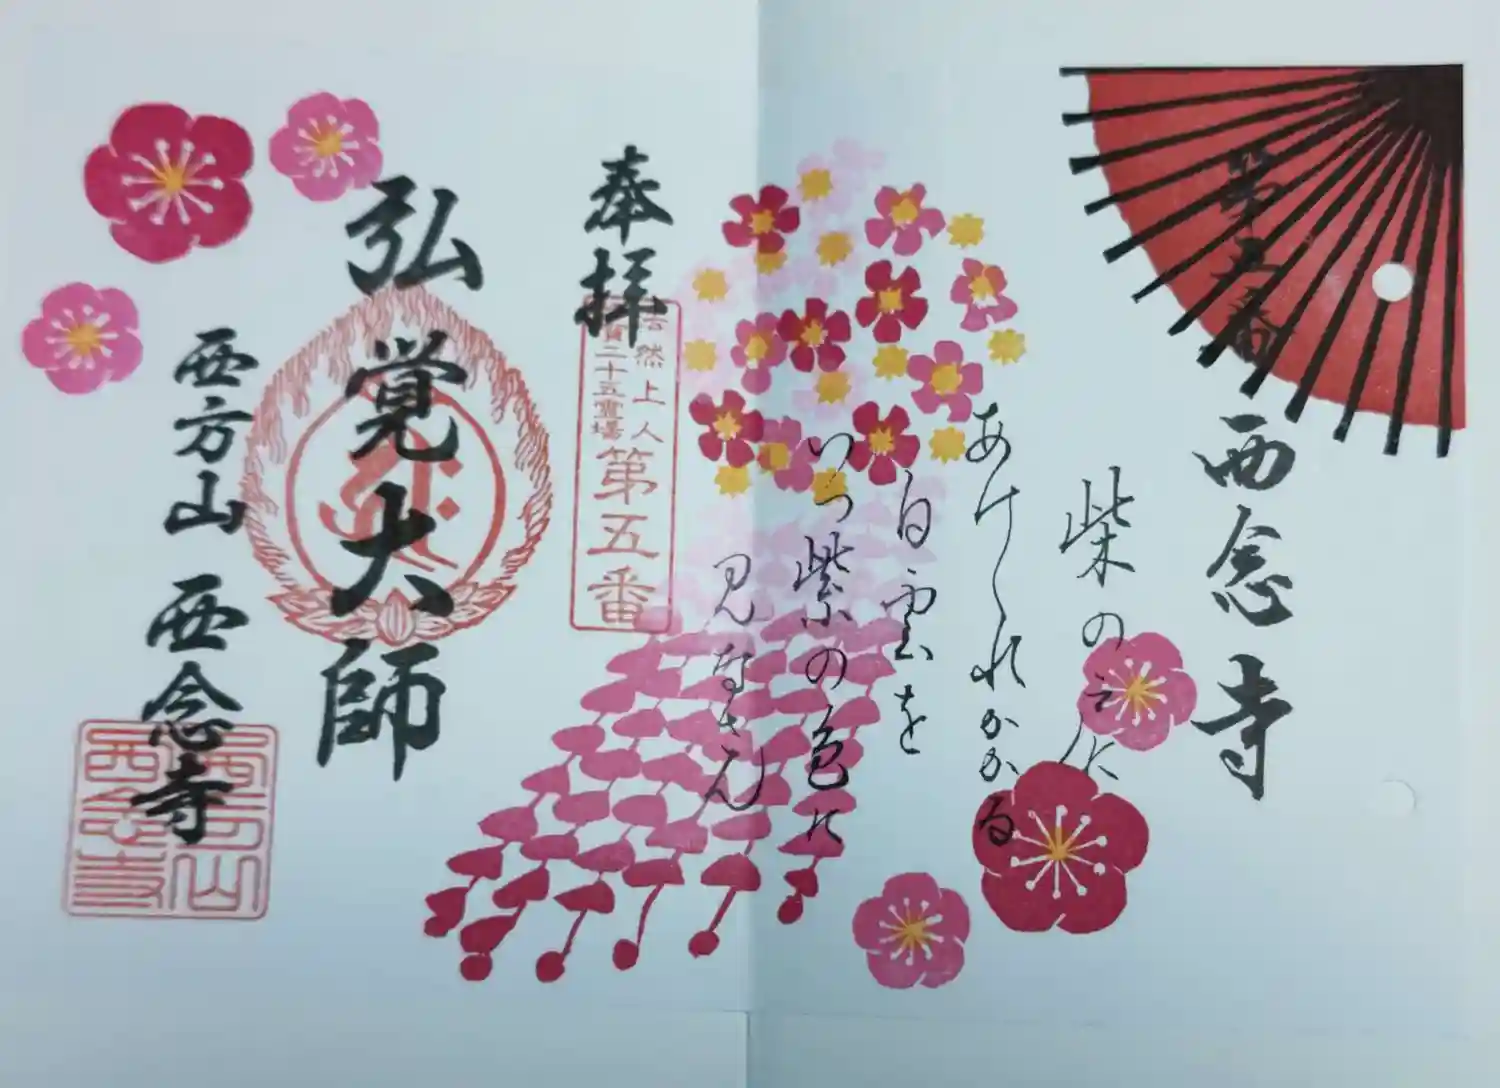 第五番
西念寺
柴の戸に
あけくれかかる
白雲を
いつ紫の色に
見なさん
奉拝
法然上人
滋賀二十五霊場
第五番
弘覚大師
西方山 西念寺
西方山
西念寺